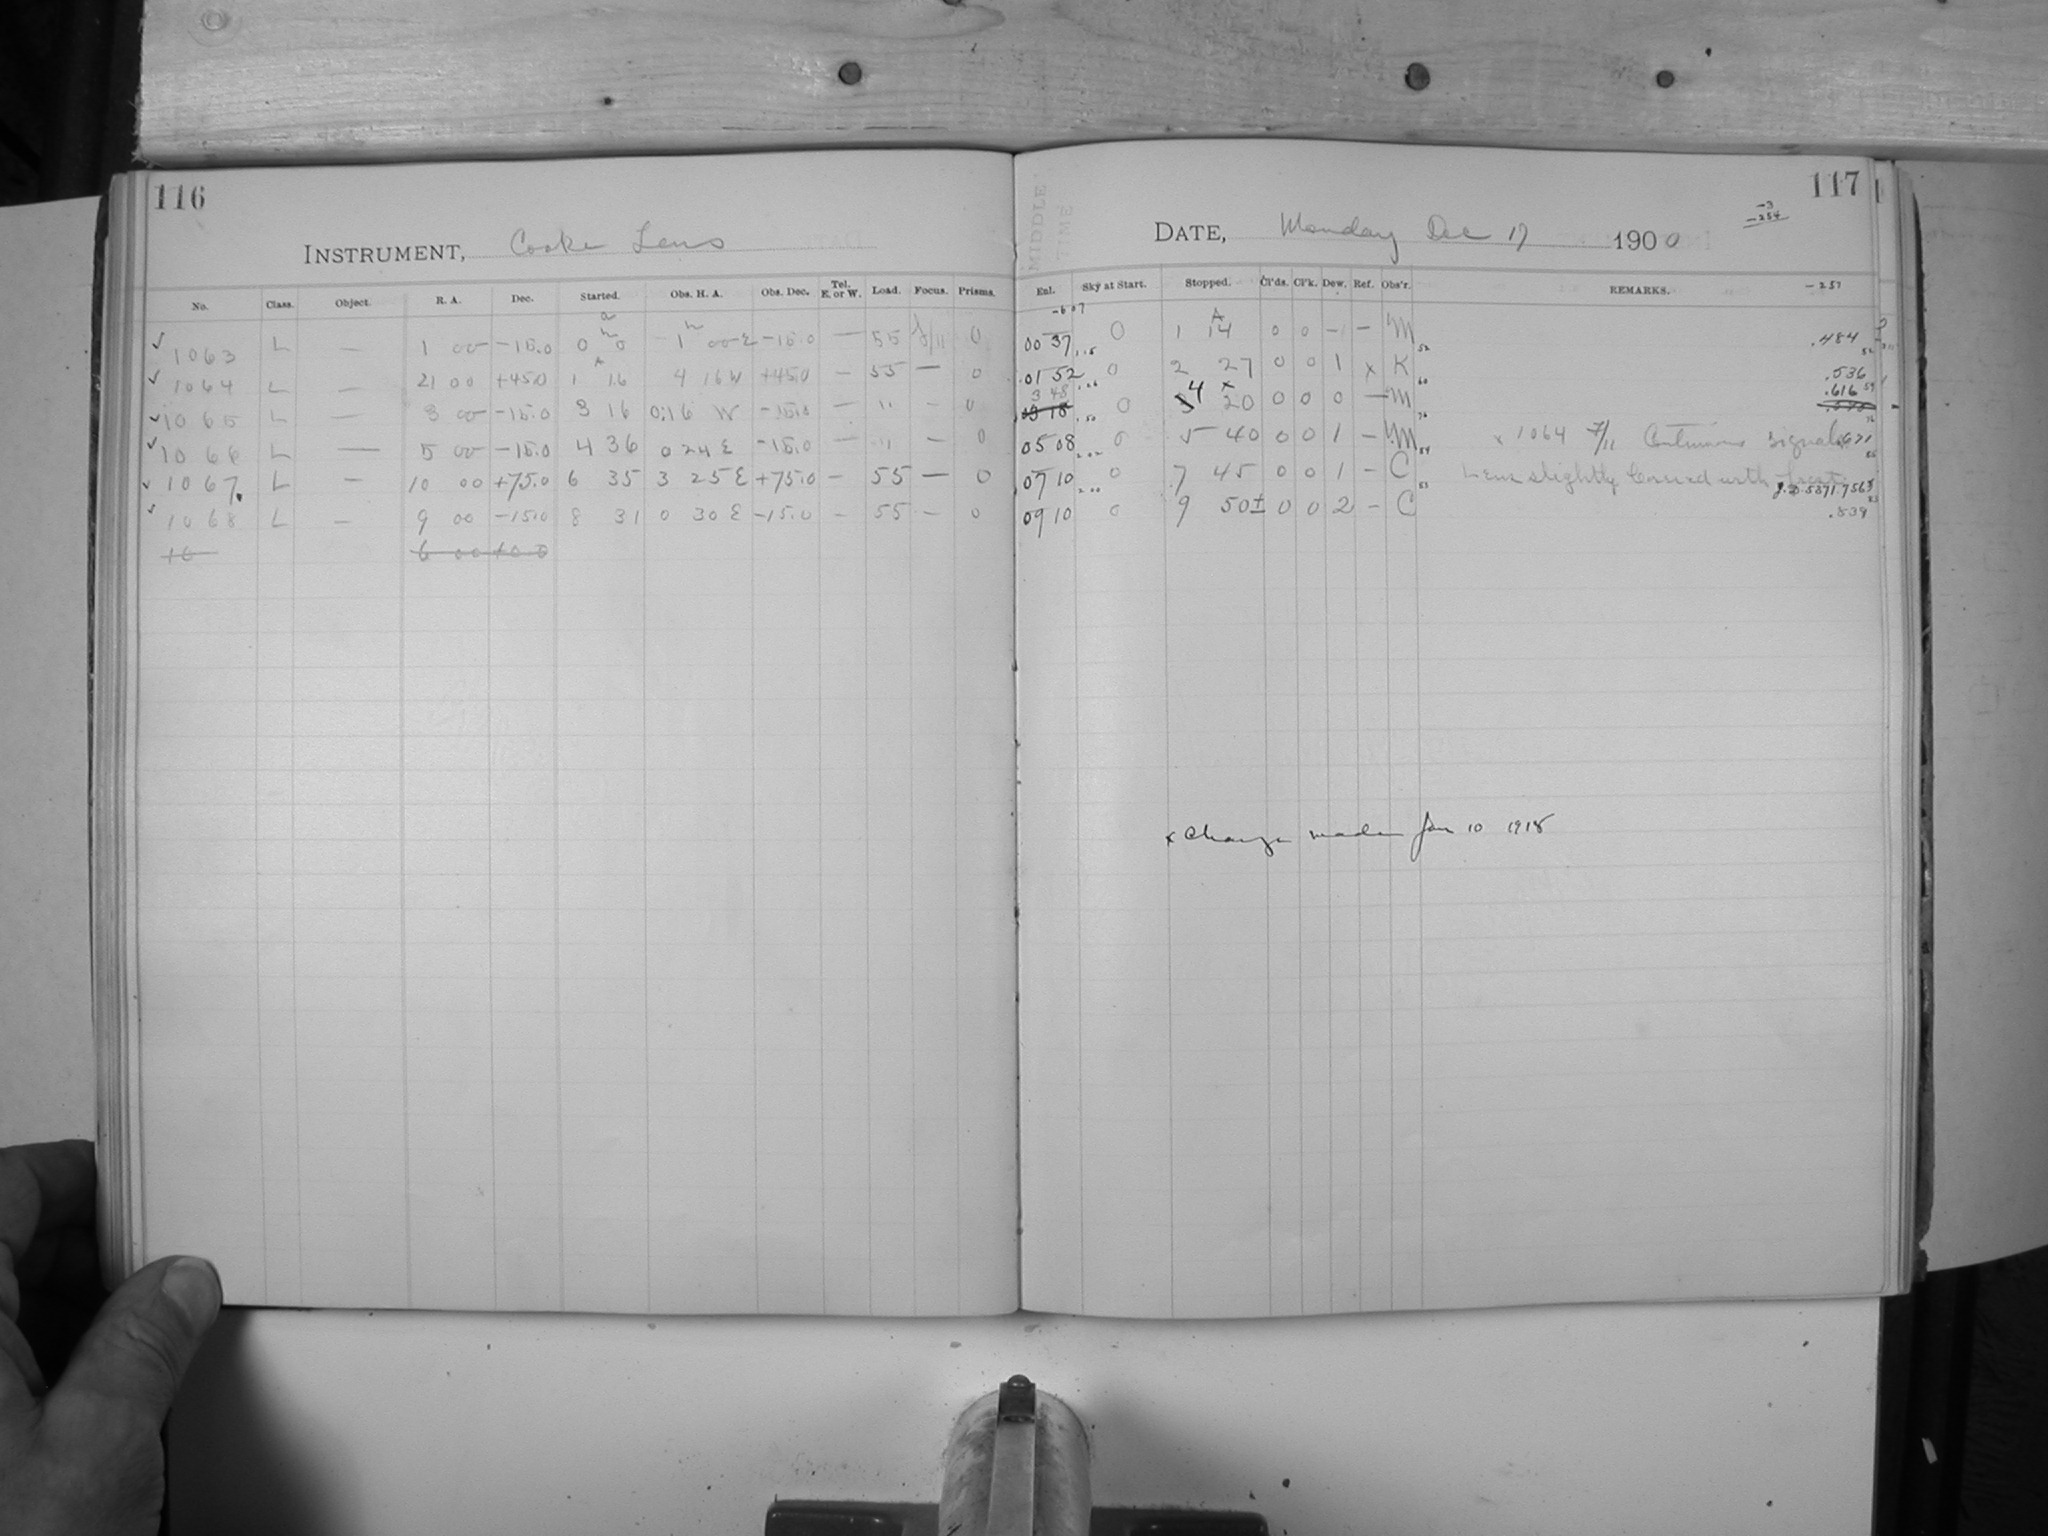 116
INSTRUMENT, Cooke Lens
No. Class. Object. R. A. Dec. Started. Obs. H. A. Obs. Dec. Tel. E. or W. Load. Focus. Prisms.
✓ 1063 L — 1 00 -15.0 0 0 1 00 E -15.0 — 55 f/11 0
✓ 1064 L — 21 00 +45.0 1 16 4 16 W +45.0 — 55 — 0
✓ 1065 L — 3 00 -15.0 3 16 0:16 W -15.0 — " — 0
✓ 1066 L — 5 00 -15.0 4 36 0 24 E -15.0 — " — 0
✓ 1067 L — 10 00 +75.0 6 35 3 25 E +75.0 — 55 — 0
✓ 1068 L — 9 00 -15.0 8 31 0 30 E -15.0 — 55 — 0
10 6 00 +0 0
117
MIDDLE TIME
-3
-254
DATE, Monday Dec 17 1900
Enl. Sky at Start. Stopped. Cl'ds. Cl'k. Dew. Ref. Obs'r. REMARKS. -257
-607
00 37 0 1 14 0 0 - - M .484
01 52 0 2 27 0 0 1 x K .536
3 48 .616
03 18 0 4 x 20 0 0 0 — M
05 08 0 5 40 0 0 1 - M x 1064 7/11 Continuous signals .671
07 10 0 7 45 0 0 1 - C Lens slightly covered with frost
J.D. 5371.756
09 10 0 9 50± 0 0 2 - C .839
x Change made Jan 10 1918